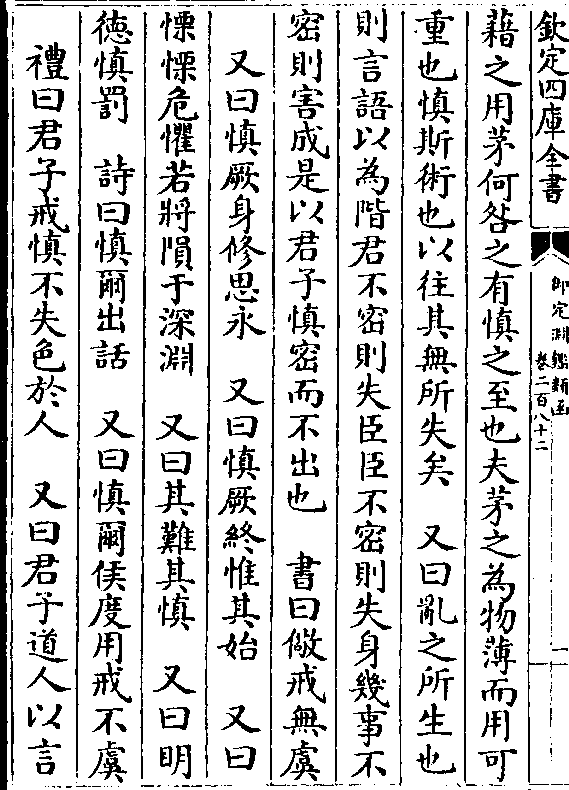 欽定四庫全書
御定淵鑑類函
卷二百八十二
一
藉之用茅何咎之有慎之至也夫茅之為物薄而用可
重也慎斯術也以往其無所失矣　又曰亂之所生也
則言語以為階君不密則失臣臣不密則失身幾事不
密則害成是以君子慎密而不出也　書曰儆戒無虞
又曰慎厥身修思永　又曰慎厥終惟其始　又曰
慄慄危懼若將隕于深淵　又曰其難其慎　又曰明
德慎罰　詩曰慎爾出話　又曰慎爾侯度用戒不虞
禮曰君子戒慎不失色於人　又曰君子道人以言